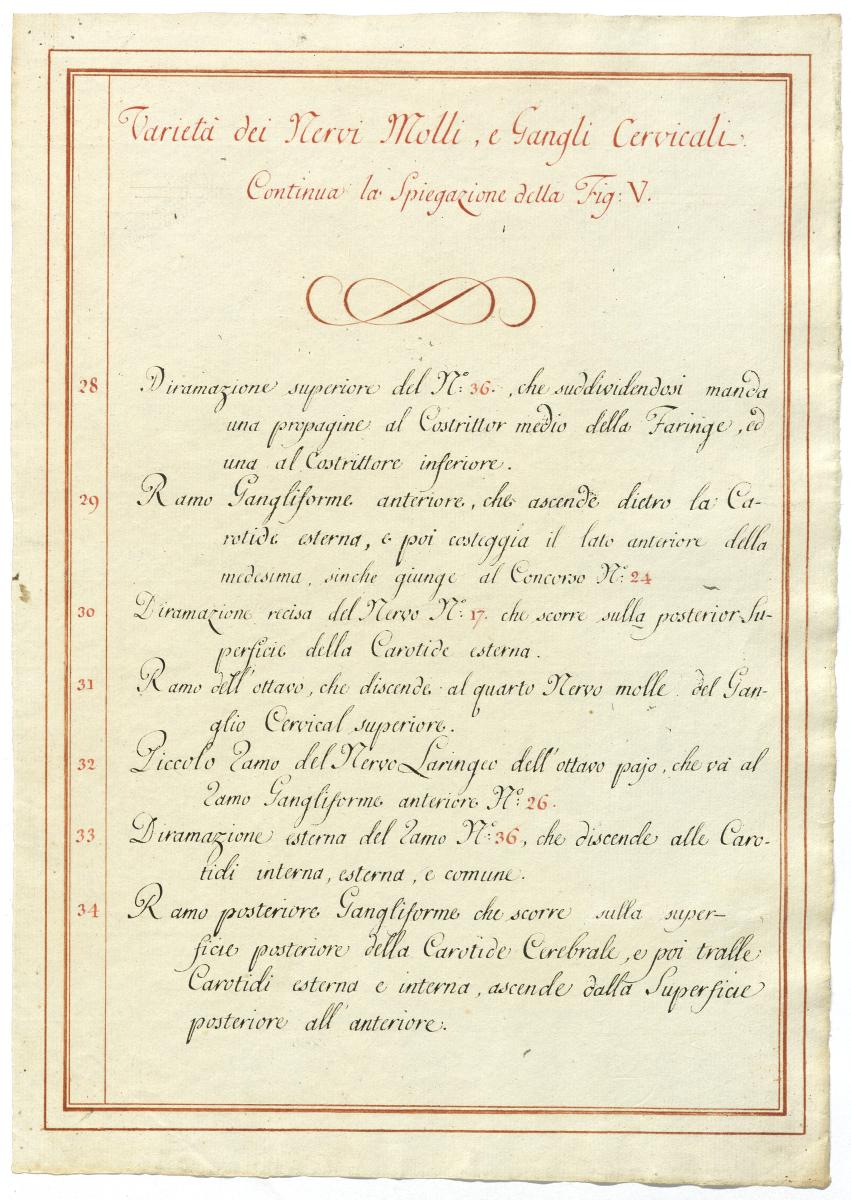 Varietà dei Nervi Molli, e Gangli Cervicali.
Continua la Spiegazione della Fig: V.
28 Diramazione superiore del N.º 36., che suddividendosi manda
una propagine al Costrittor medio della Faringe, ed
una al Costrittore inferiore.
29 Ramo Gangliforme anteriore, che ascende dietro la Ca-
rotide esterna, e poi costeggia il lato anteriore della
medesima, sinche giunge al Concorso N.º 24
30 Diramazione recisa del Nervo N.º 17. che scorre sulla posterior Su-
perficie della Carotide esterna.
31 Ramo dell'ottavo, che discende al quarto Nervo molle del Gan-
glio Cervical superiore.
32 Piccolo ramo del Nervo Laringeo dell'ottavo pajo, che và al
ramo Gangliforme anteriore N.º 26.
33 Diramazione esterna del ramo N.º 36, che discende alle Caro-
tidi interna, esterna, e comune.
34 Ramo posteriore Gangliforme che scorre sulla super-
ficie posteriore della Carotide Cerebrale, e poi tralle
Carotidi esterna e interna, ascende dalla Superficie
posteriore all'anteriore.